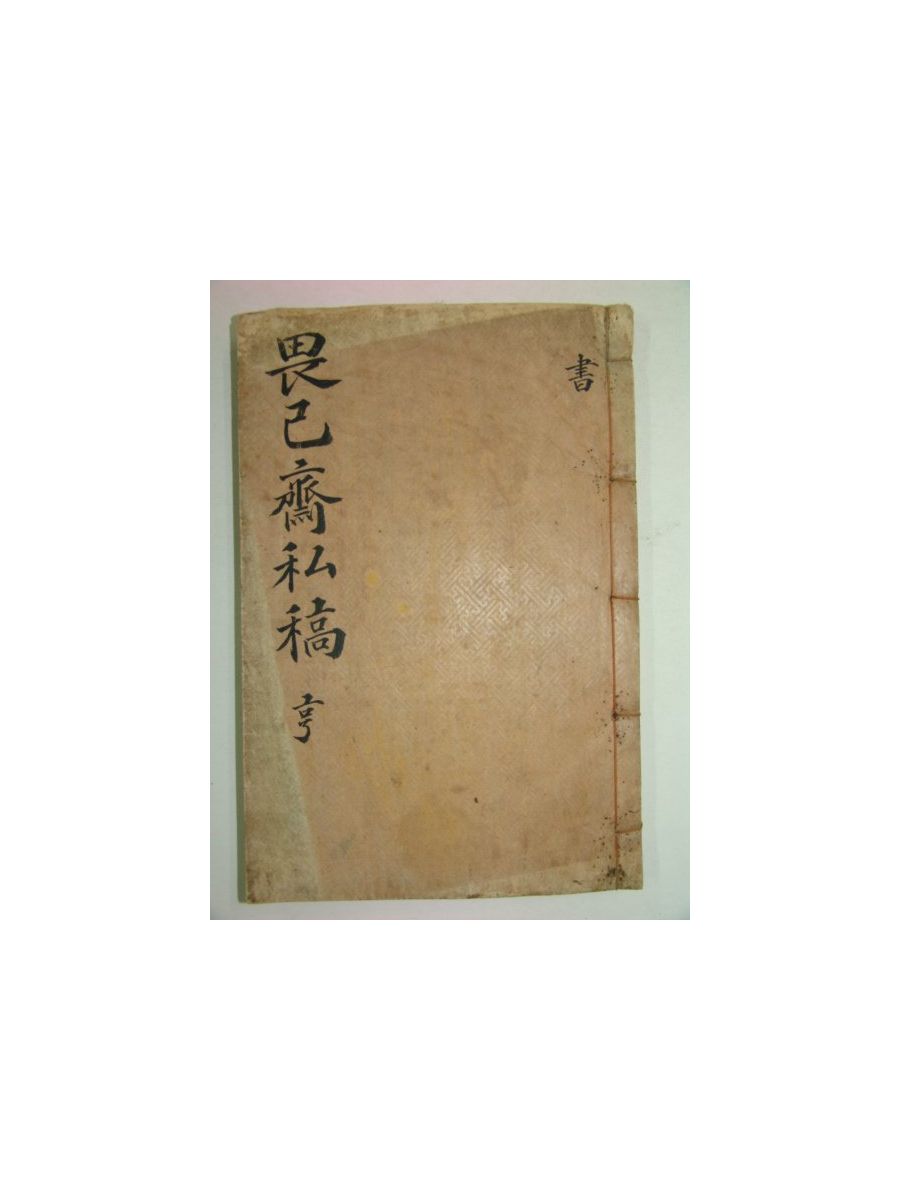 書
畏己齋私稿 亨